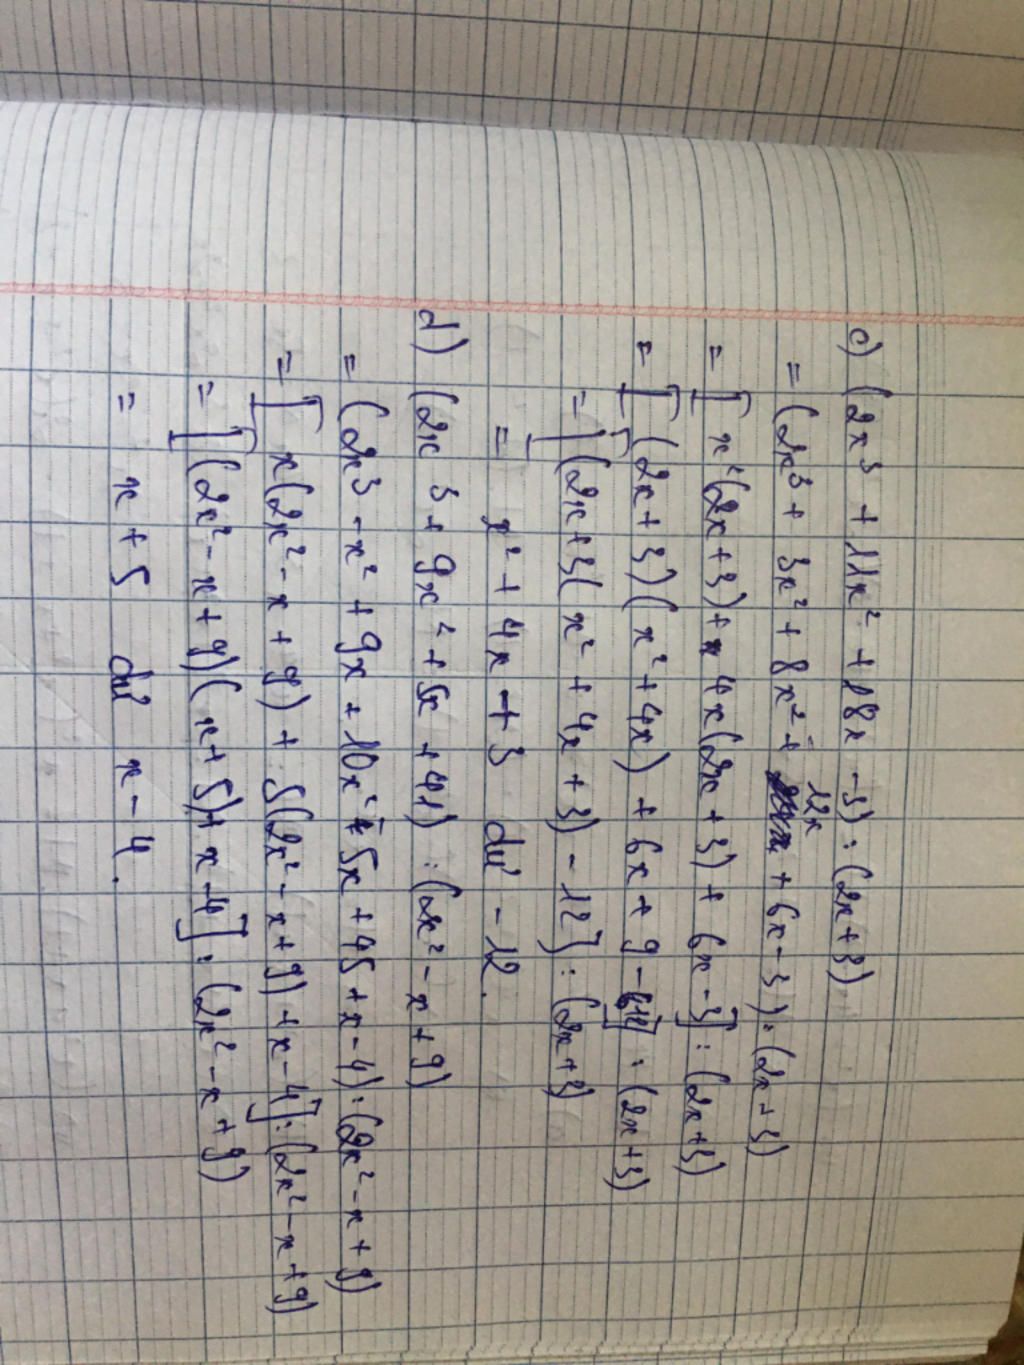 c) (2x³ + 11x² + 18x - 3) : (2x+3)
= (2x³ + 3x² + 8x² + 12x + 6x - 3) : (2x+3)
= [x²(2x+3) + 4x(2x+3) + 6x - 3] : (2x+3)
= [(2x+3)(x²+4x) + 6x + 9 - 12] : (2x+3)
= [(2x+3(x² + 4x + 3) - 12] : (2x+3)
= x² + 4x + 3 dư -12.
d) (2x3 + 9x² + 5x + 41) : (2x² - x + 9)
= (2x³ - x² + 9x + 10x² - 5x + 45 + x - 4) : (2x² - x + 9)
= [x(2x² - x + 9) + 5(2x² - x + 9) + x - 4] : (2x² - x + 9)
= [(2x² - x + 9)(x+5) + x - 4] : (2x² - x + 9)
= x + 5 dư x - 4.